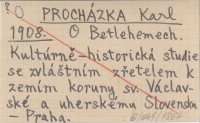 ? O PROCHÁZKA Karl
1908. O Betlehemech.
Kulturně-historická studie
se zvláštním zřetelem k
zemím koruny sv. Václav-
ské a uherskému Slovensku
– Praha.